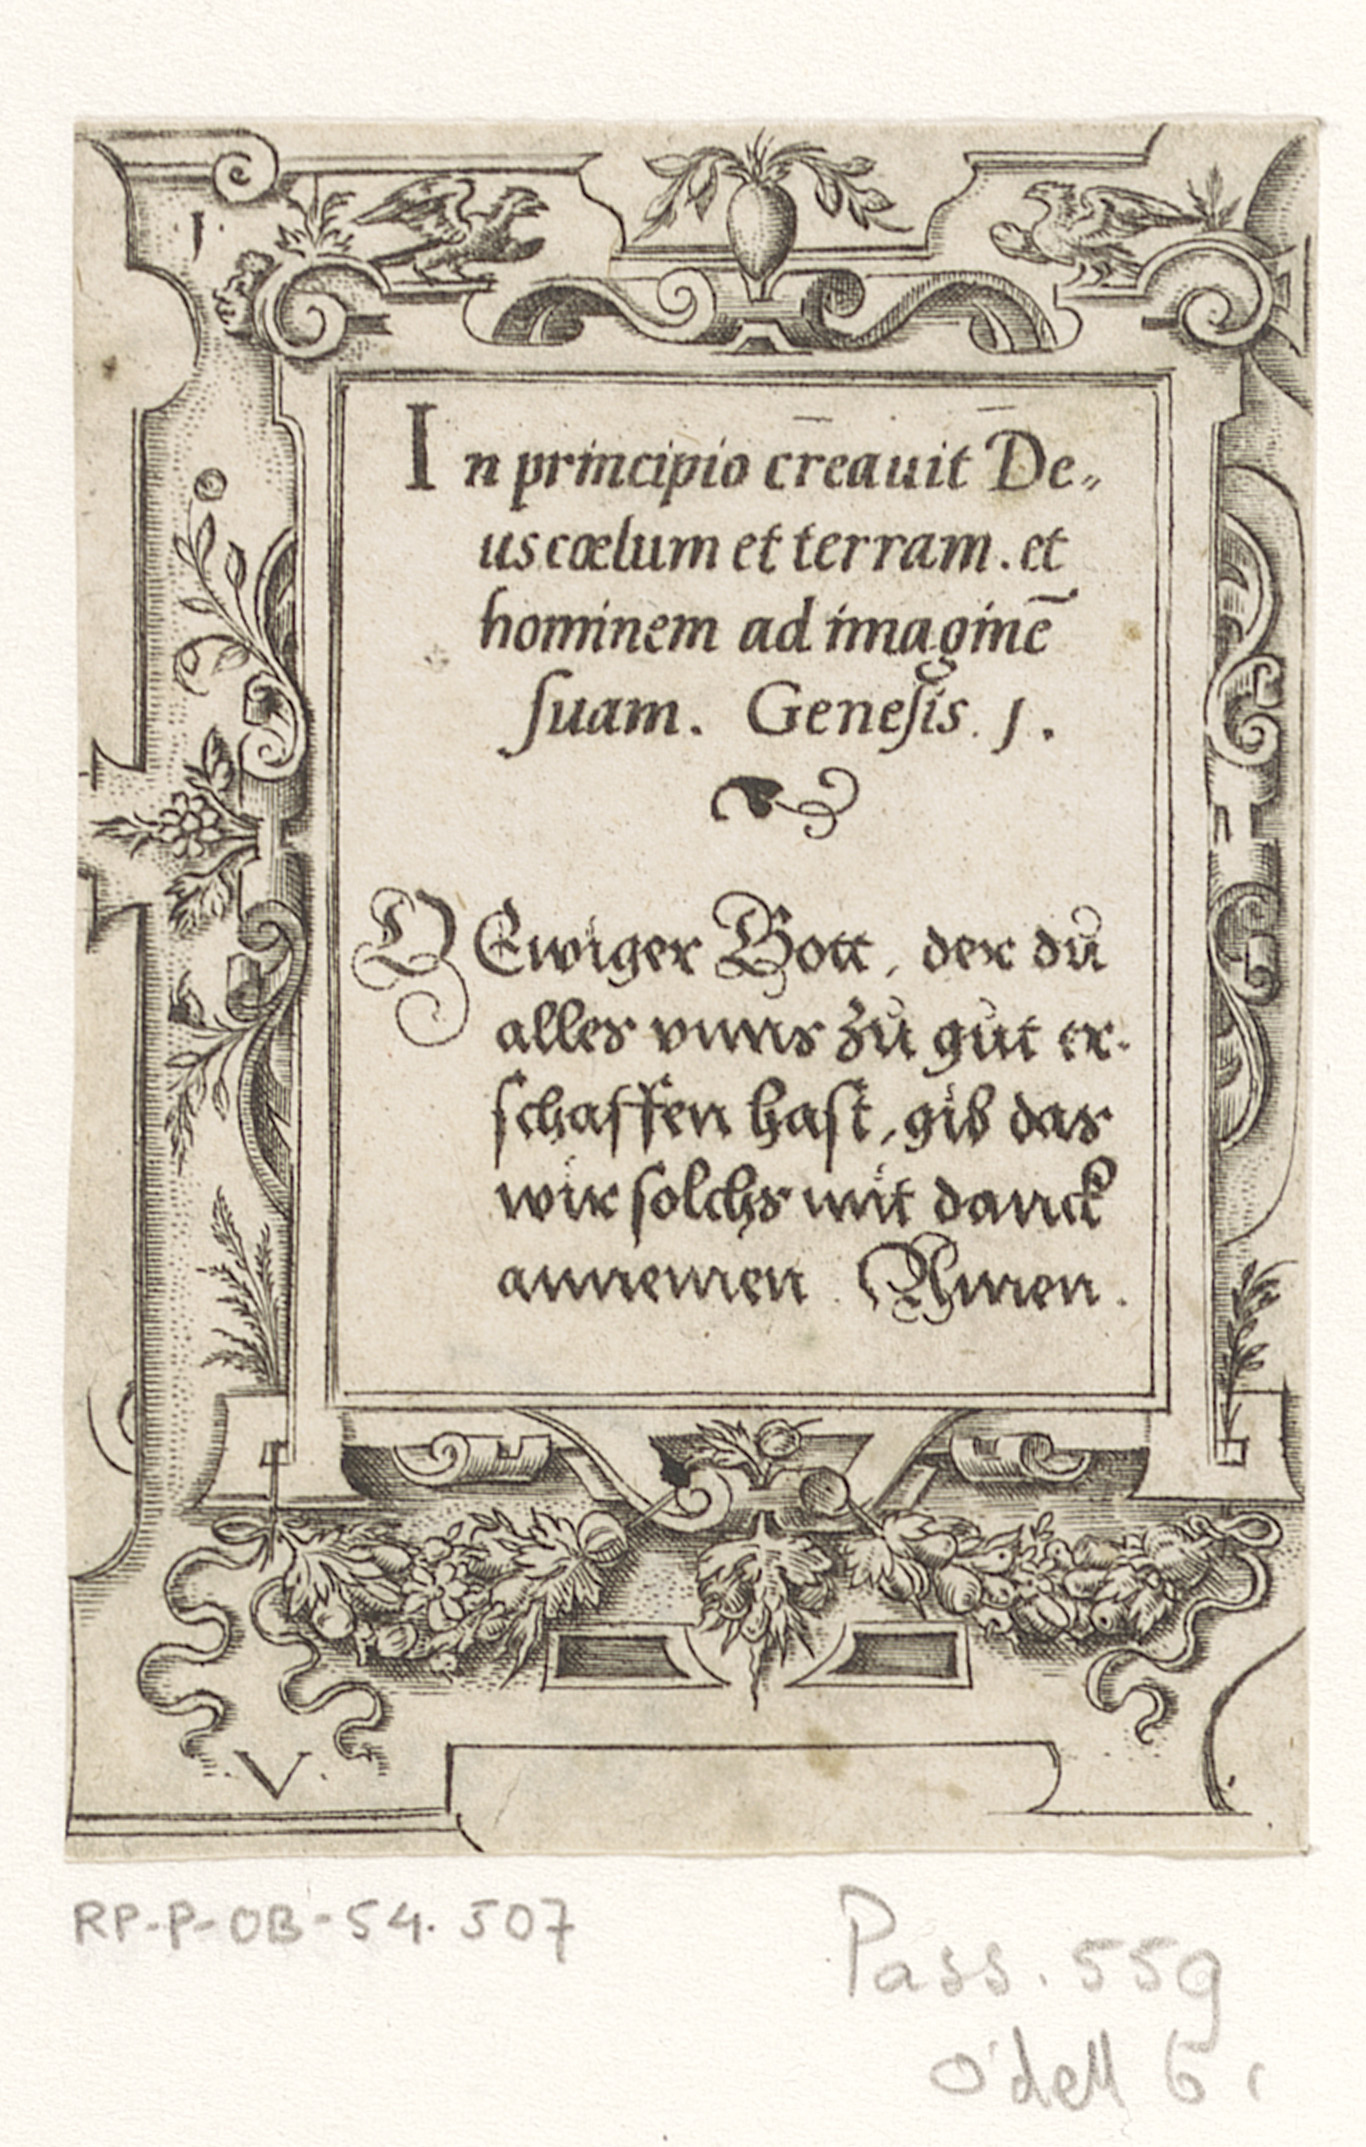 1.
In principio creauit De„
us cœlum et terram. et
hominem ad imaginē
ſuam. Geneſis. 1.
O Ewiger Gott, der dů
alles vnns zů gůt er-
schaffen hast, gib das
wir solchs mit danck
annemen. Amen.
V
RP-P-OB-54.507
Pass. 55g
O'dell 61